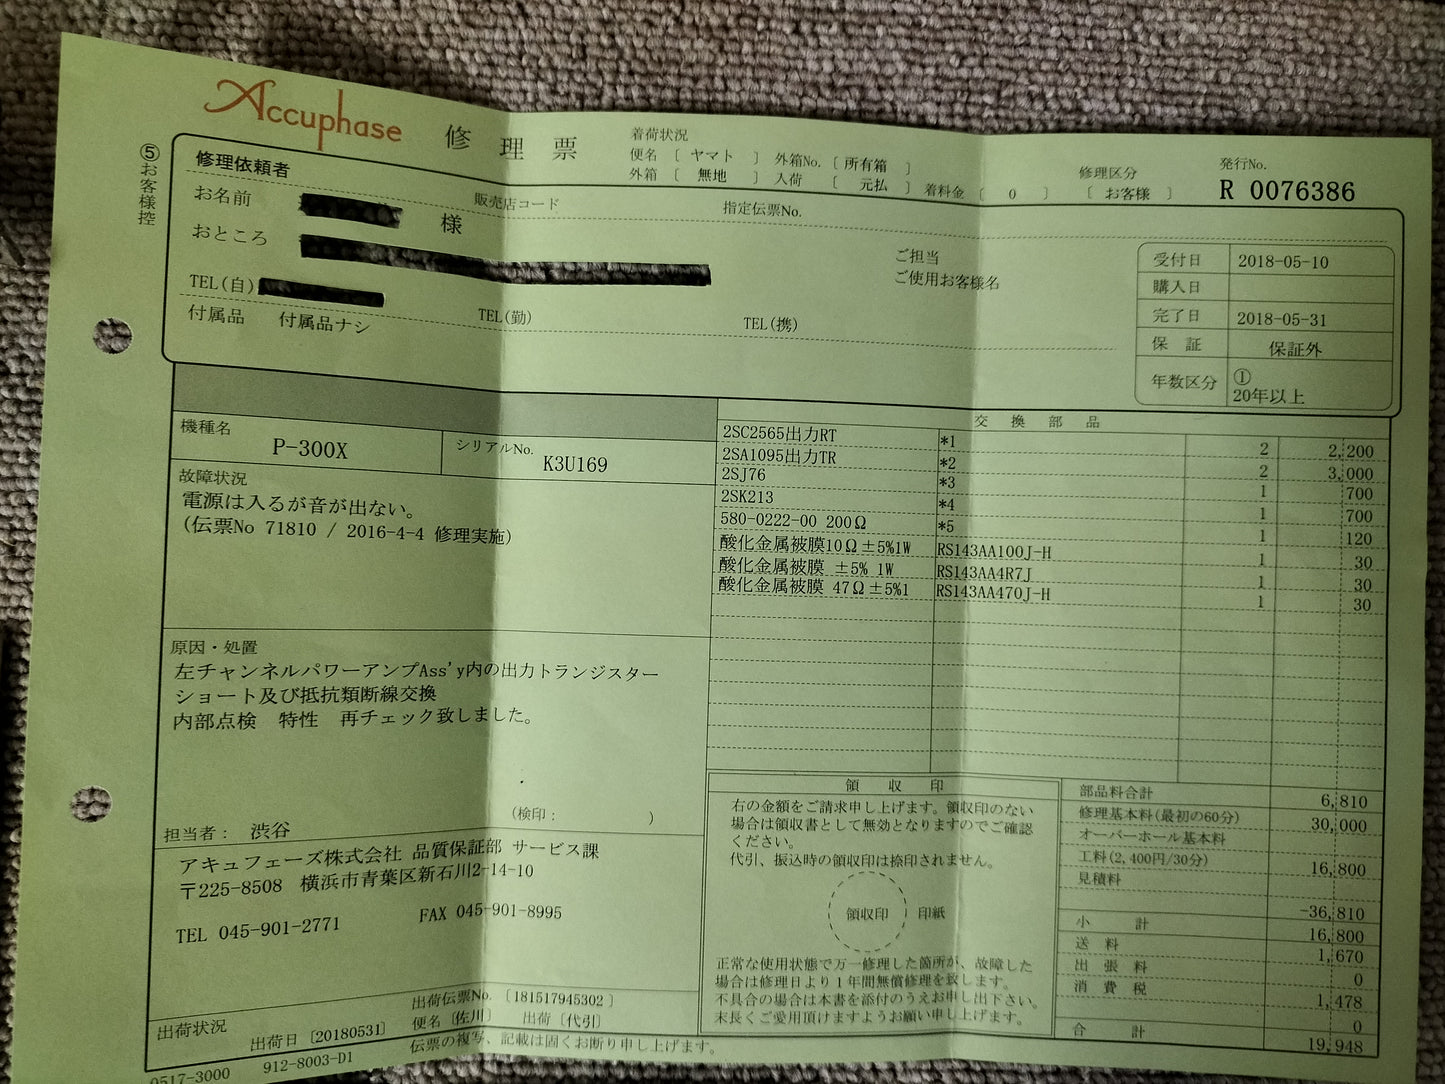 Accuphase 修理票
着荷状況
便名 〔 ヤマト 〕 外箱No.〔 所有箱 〕
外箱 〔 無地 〕 入荷 〔 元払 〕 着料金 〔 0 〕
修理区分
〔 お客様 〕
発行No.
R 0076386
⑤お客様控
修理依頼者
お名前 様
販売店コード
指定伝票No.
おところ
ご担当
ご使用お客様名
TEL(自)
TEL(勤)
TEL(携)
付属品 付属品ナシ
受付日 2018-05-10
購入日
完了日 2018-05-31
保 証 保証外
年数区分 ①
20年以上
機種名 P-300X
シリアルNo. K3U169
故障状況
電源は入るが音が出ない。
(伝票No 71810 / 2016-4-4 修理実施)
交 換 部 品
2SC2565出力RT *1 2 2,200
2SA1095出力TR *2 2 3,000
2SJ76 *3 1 700
2SK213 *4 1 700
580-0222-00 200Ω *5 1 120
酸化金属被膜10Ω±5%1W RS143AA100J-H 1 30
酸化金属被膜 ±5% 1W RS143AA4R7J 1 30
酸化金属被膜 47Ω±5%1 RS143AA470J-H 1 30
原因・処置
左チャンネルパワーアンプAss'y内の出力トランジスター
ショート及び抵抗類断線交換
内部点検 特性 再チェック致しました。
(検印: )
担当者: 渋谷
アキュフェーズ株式会社 品質保証部 サービス課
〒225-8508 横浜市青葉区新石川2-14-10
TEL 045-901-2771 FAX 045-901-8995
領 収 印
右の金額をご請求申し上げます。領収印のない
場合は領収書として無効となりますのでご確認
ください。
代引、振込時の領収印は捺印されません。
領収印 印紙
正常な使用状態で万一修理した箇所が、故障した
場合は修理日より1年間無償修理を致します。
不具合の場合は本書を添付のうえお申し出下さい。
末長くご愛用頂けますようお願い申し上げます。
部品料合計 6,810
修理基本料(最初の60分) 30,000
オーバーホール基本料
工料(2,400円/30分) 16,800
見積料
-36,810
小 計 16,800
送 料 1,670
出 張 料 0
消 費 税 1,478
0
合 計 19,948
出荷状況
出荷伝票No.〔181517945302〕
出荷日〔20180531〕 便名〔佐川〕 出荷〔代引〕
伝票の複写、記載は固くお断り申し上げます。
0517-3000 912-8003-D1